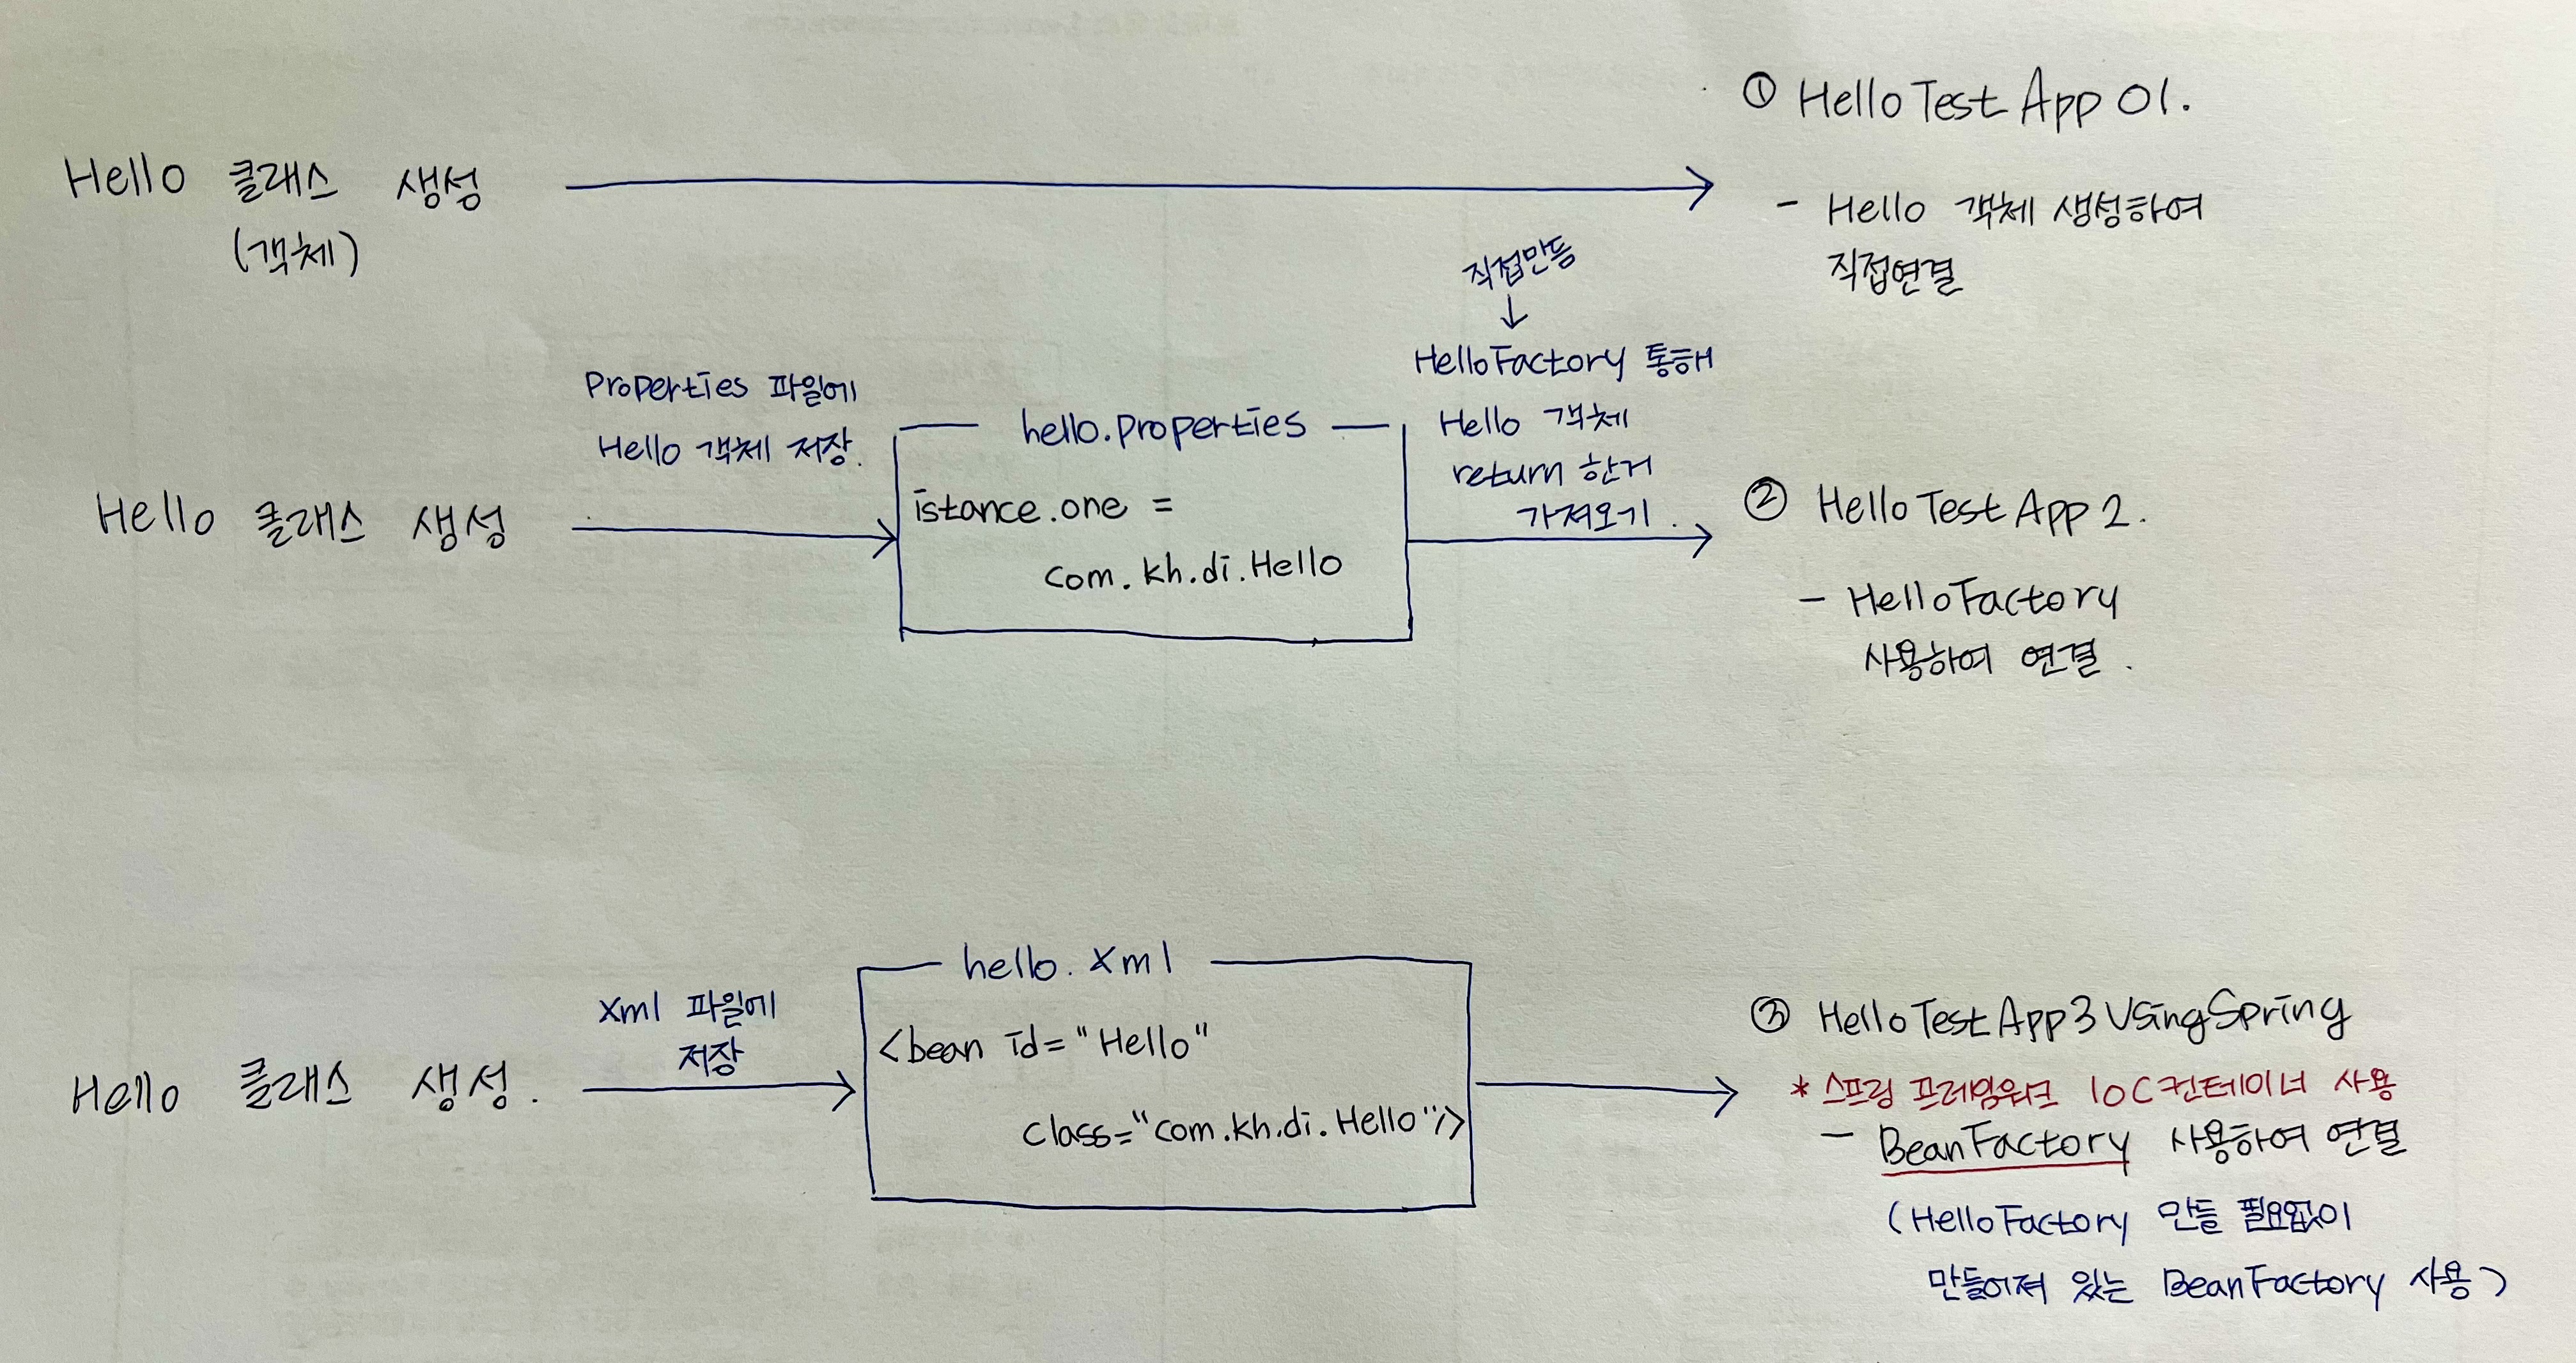 Hello 클래스 생성
(객체)
① HelloTestApp01.
- Hello 객체 생성하여
직접연결
Hello 클래스 생성
Properties 파일에
Hello 객체 저장.
hello.properties
istance.one =
com.kh.di.Hello
직접만듬
↓
HelloFactory 통해
Hello 객체
return 한거
가져오기.
② HelloTestApp2.
- HelloFactory
사용하여 연결.
Hello 클래스 생성.
xml 파일에
저장
hello.xml
<bean id="Hello"
class="com.kh.di.Hello"/>
③ HelloTestApp3UsingSpring
* 스프링 프레임워크 IoC컨테이너 사용
- BeanFactory 사용하여 연결
(HelloFactory 만들 필요없이
만들어져 있는 BeanFactory 사용)